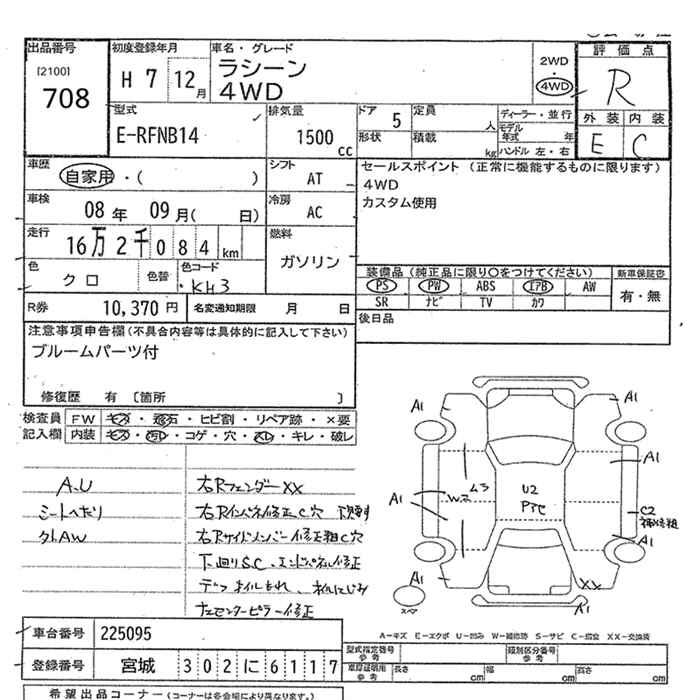 出品番号 初度登録年月 車名・グレード 評価点
[2100]
708
H 7 12月
ラシーン
4WD
2WD
4WD
R
型式
E-RFNB14
排気量
1500 cc
ドア 5 定員 人
形状 積載 kg
ディーラー・並行
モデル年式 年
ハンドル 左・右
外装 内装
E C
車歴
自家用・( )
シフト
AT
セールスポイント (正常に機能するものに限ります)
4WD
カスタム使用
車検
08年 09月( 日)
冷房
AC
走行
16万2千084 km
燃料
ガソリン
色
クロ
色替
色コード
KH3
装備品 (純正品に限り○をつけてください) 新車保証書
PS PW ABS エアB AW
SR ナビ TV カワ
有・無
R券 10,370円 名変通知期限 月 日
後日品
注意事項申告欄(不具合内容等は具体的に記入して下さい)
ブルームパーツ付
修復歴 有 [箇所 ]
検査員 FW キズ・飛石・ヒビ割・リペア跡・×要
記入欄 内装 キズ・汚レ・コゲ・穴・スレ・キレ・破レ
A.U
シートへたり
外AW
右Rフェンダー××
右Rインパネ修正C穴
右Rサイドメンバー修正粗C穴
下廻りS.C、エンドパネル修正
デフオイルもれ、オイルにじみ
左センターピラー修正
A1 A1
A1
A1
W2
U2
C2
補修粗
A1 A1
××
A1
スペア
A-キズ E-エクボ U-凹み W-補修跡 S-サビ C-腐食 ××-交換済
車台番号 225095
登録番号 宮城 302に6117
型式指定番号 参考
類別区分番号 参考
車庫証明用 参考 長さ cm 幅 cm 高さ cm
希望出品コーナー (コーナーは各会場により異なります。)